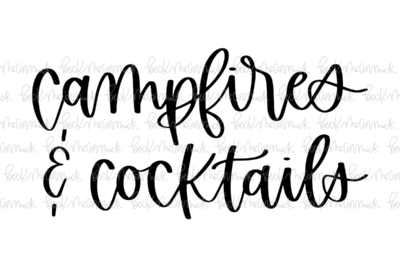 campfires
& cocktails